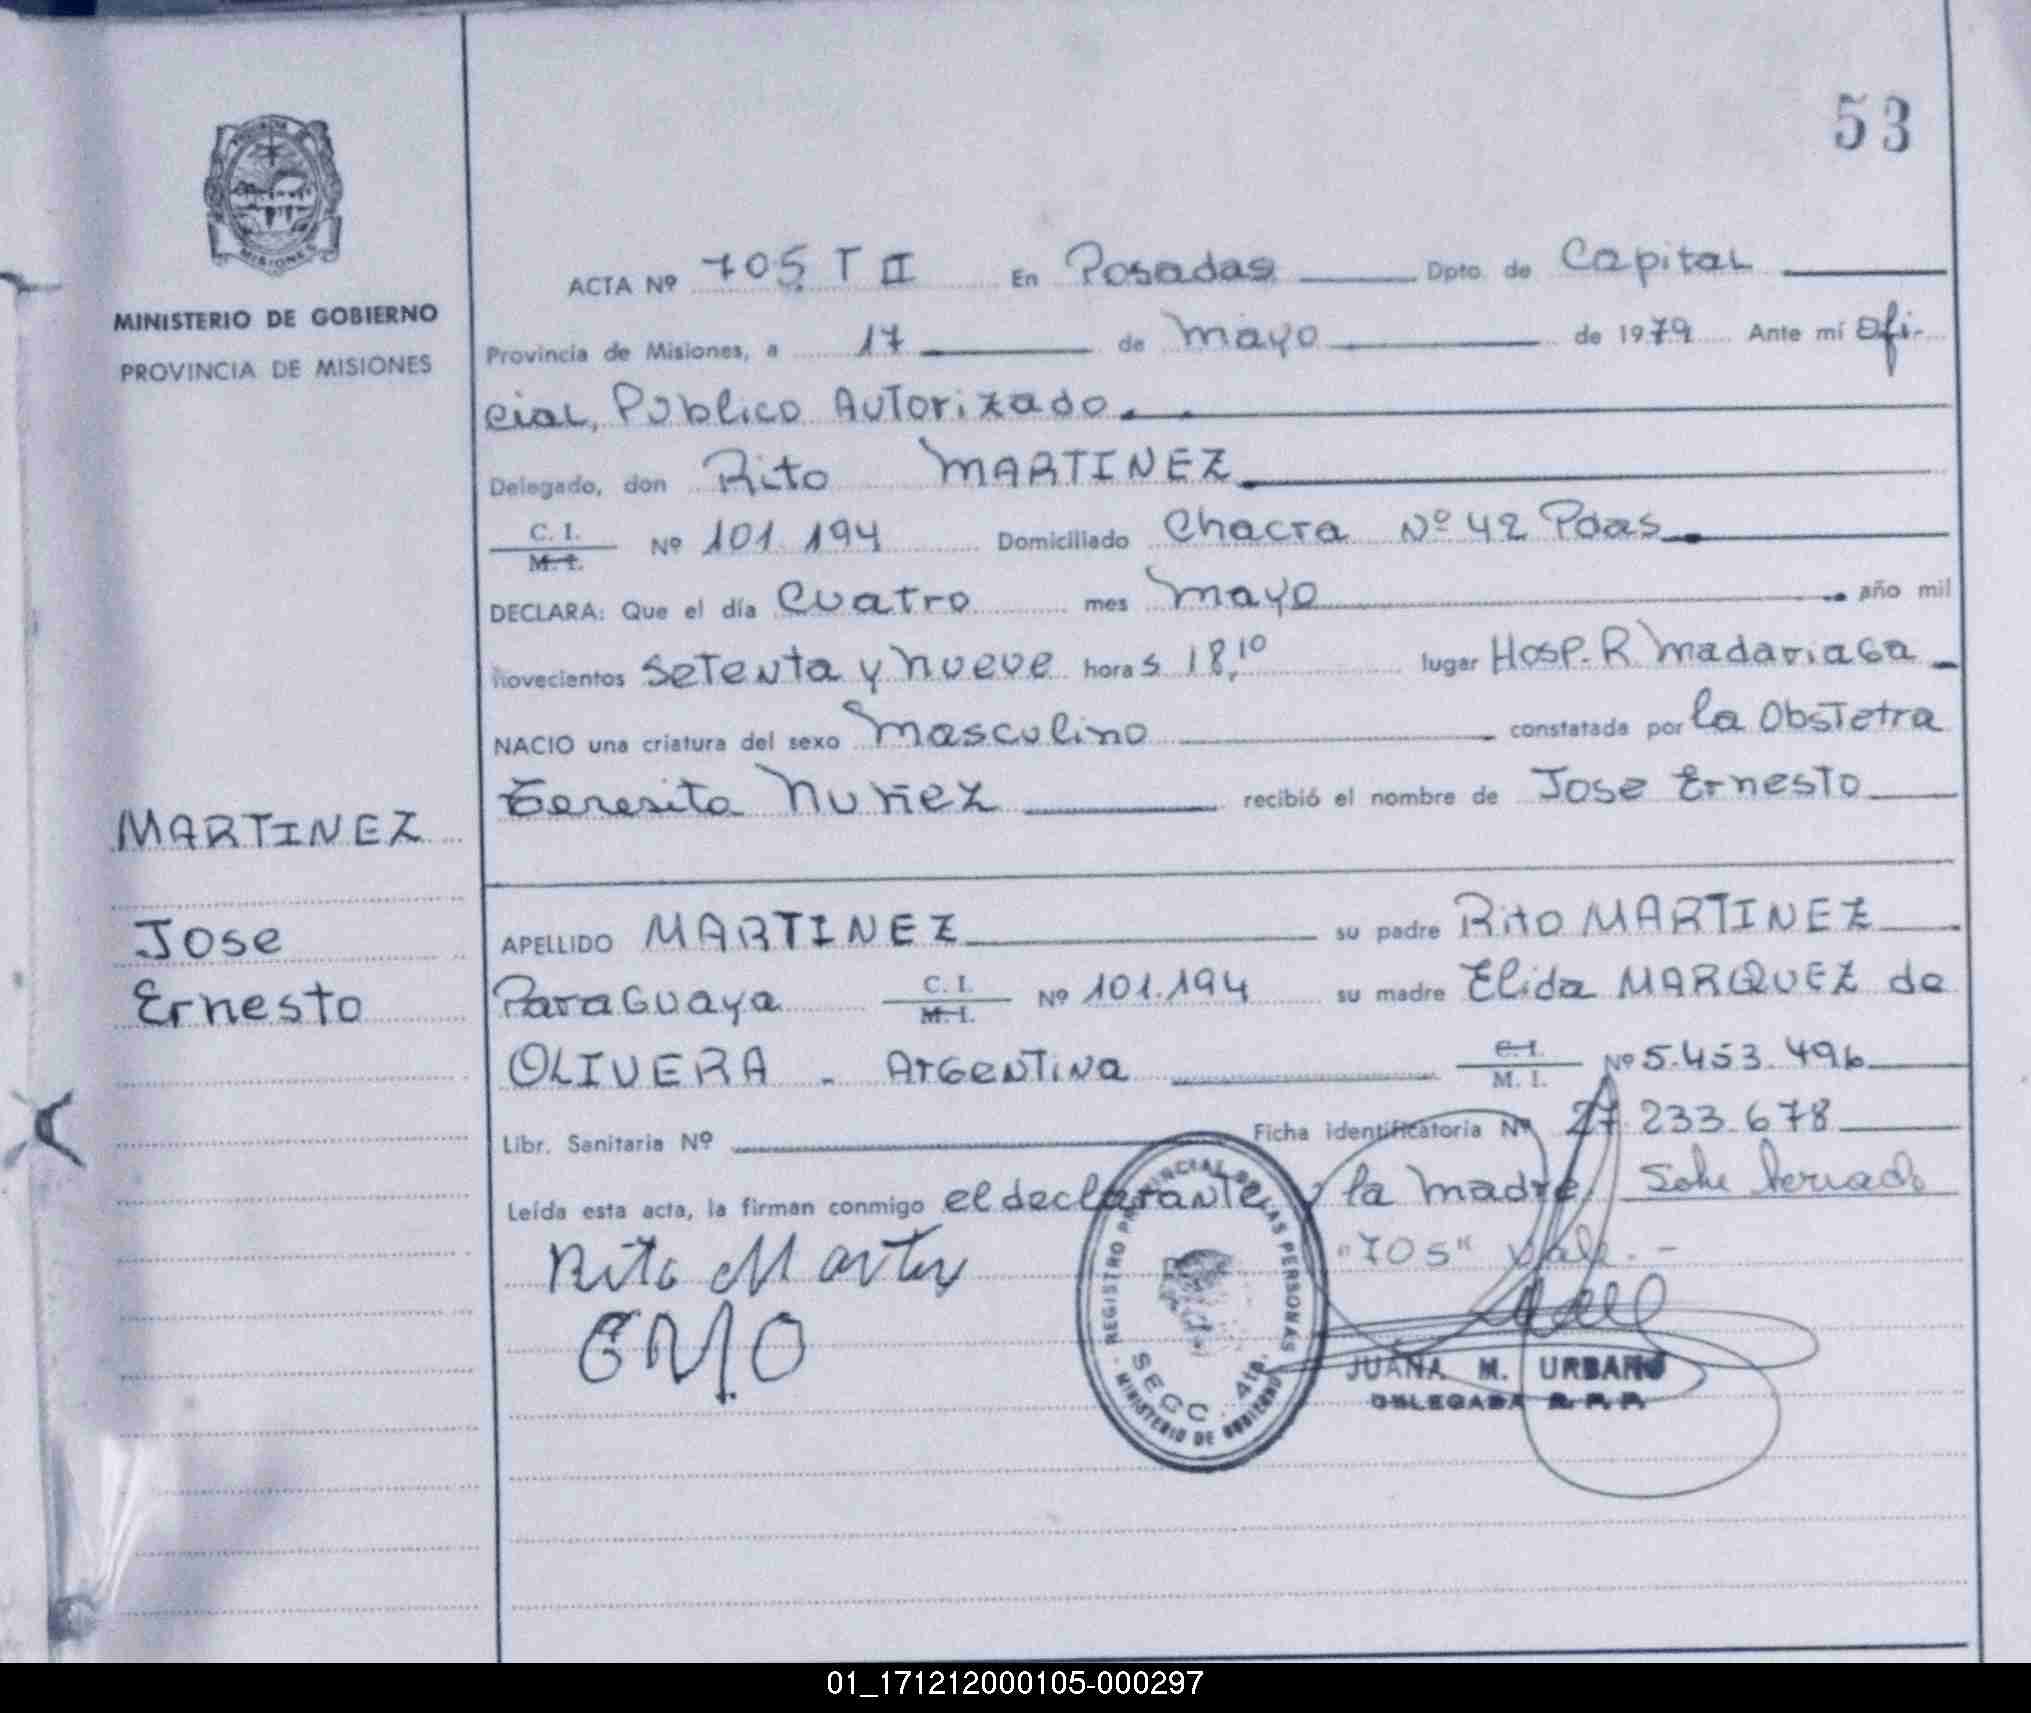 53
PROVINCIA DE MISIONES
MINISTERIO DE GOBIERNO
PROVINCIA DE MISIONES
ACTA Nº 705 T II En Posadas Dpto. de Capital
Provincia de Misiones, a 17 de mayo de 1979 Ante mí Ofi-
cial, Publico Autorizado.
Delegado, don Rito MARTINEZ
C. I.
M. I. Nº 101.194 Domiciliado Chacra Nº 42 Pdas
DECLARA: Que el día Cuatro mes mayo año mil
novecientos setenta y nueve horas 18,10 lugar Hosp. R Madariaga
NACIO una criatura del sexo masculino constatada por la Obstetra
Teresita Nuñez recibió el nombre de Jose Ernesto
MARTINEZ
Jose
Ernesto
APELLIDO MARTINEZ su padre Rito MARTINEZ
Paraguaya C. I.
M. I. Nº 101.194 su madre Elida MARQUEZ de
OLIVERA - Argentina C. I.
M. I. Nº 5.453.496
Libr. Sanitaria Nº Ficha identificatoria Nº 27.233.678
Leída esta acta, la firman conmigo el declarante y la madre,
"705" Vale.-
Rito Martinez
EMO
REGISTRO PROVINCIAL DE LAS PERSONAS
SECC. 4ta.
MINISTERIO DE GOBIERNO
JUANA M. URBANO
DELEGADA R. P. P.
01_171212000105-000297